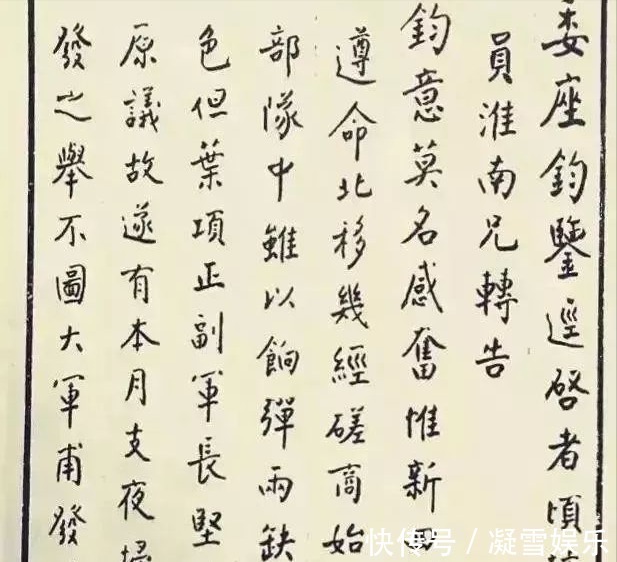 委座鈞鑒逕啓者頃
員淮南兄轉告
鈞意莫名感奮惟新四
遵命北移幾經磋商始
部隊中雖以餉彈兩缺
色但葉項正副軍長堅
原議故遂有本月支夜
發之舉不圖大軍甫發
快传号／凝雪娱乐